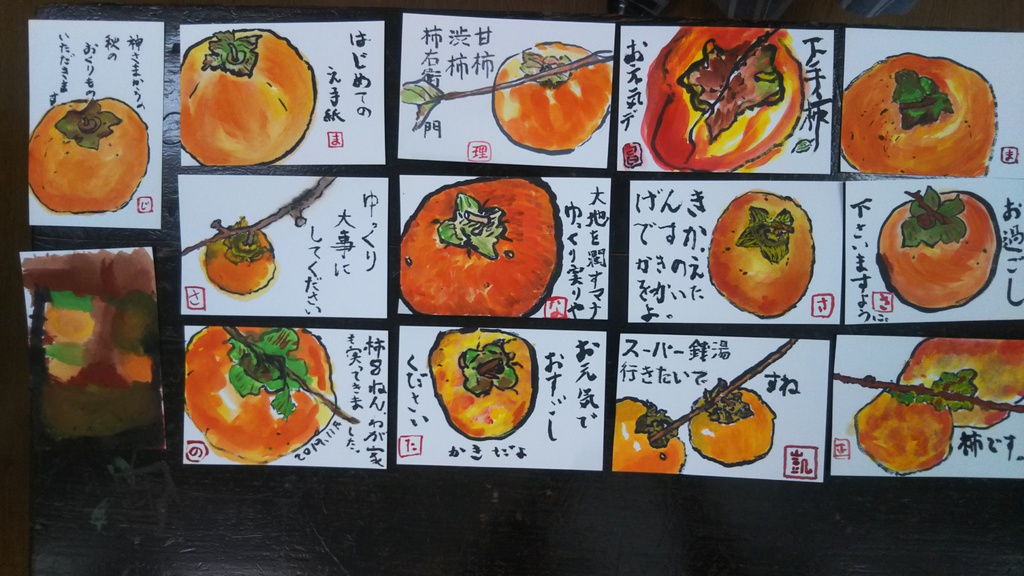 神さまからの
秋の
おくりもの
いただきます
じ
はじめての
え手紙
ま
甘柿
渋柿
柿右衛門
理
下手柿
お元気デ
ま
ゆっくり
大事に
してください
さ
大地を潤すマナ
ゆっくり実りや
な
きがえた
んすのい
げんきか。
でがをよ
さ
お過ごし
下さいますように
き
柿8ねん、わが家
も実ってきま
した。
2019.11月
の
お元気で
おすごし
ください
かきだよ
た
スーパー銭湯
行きたいで
すね
凱
柿です。